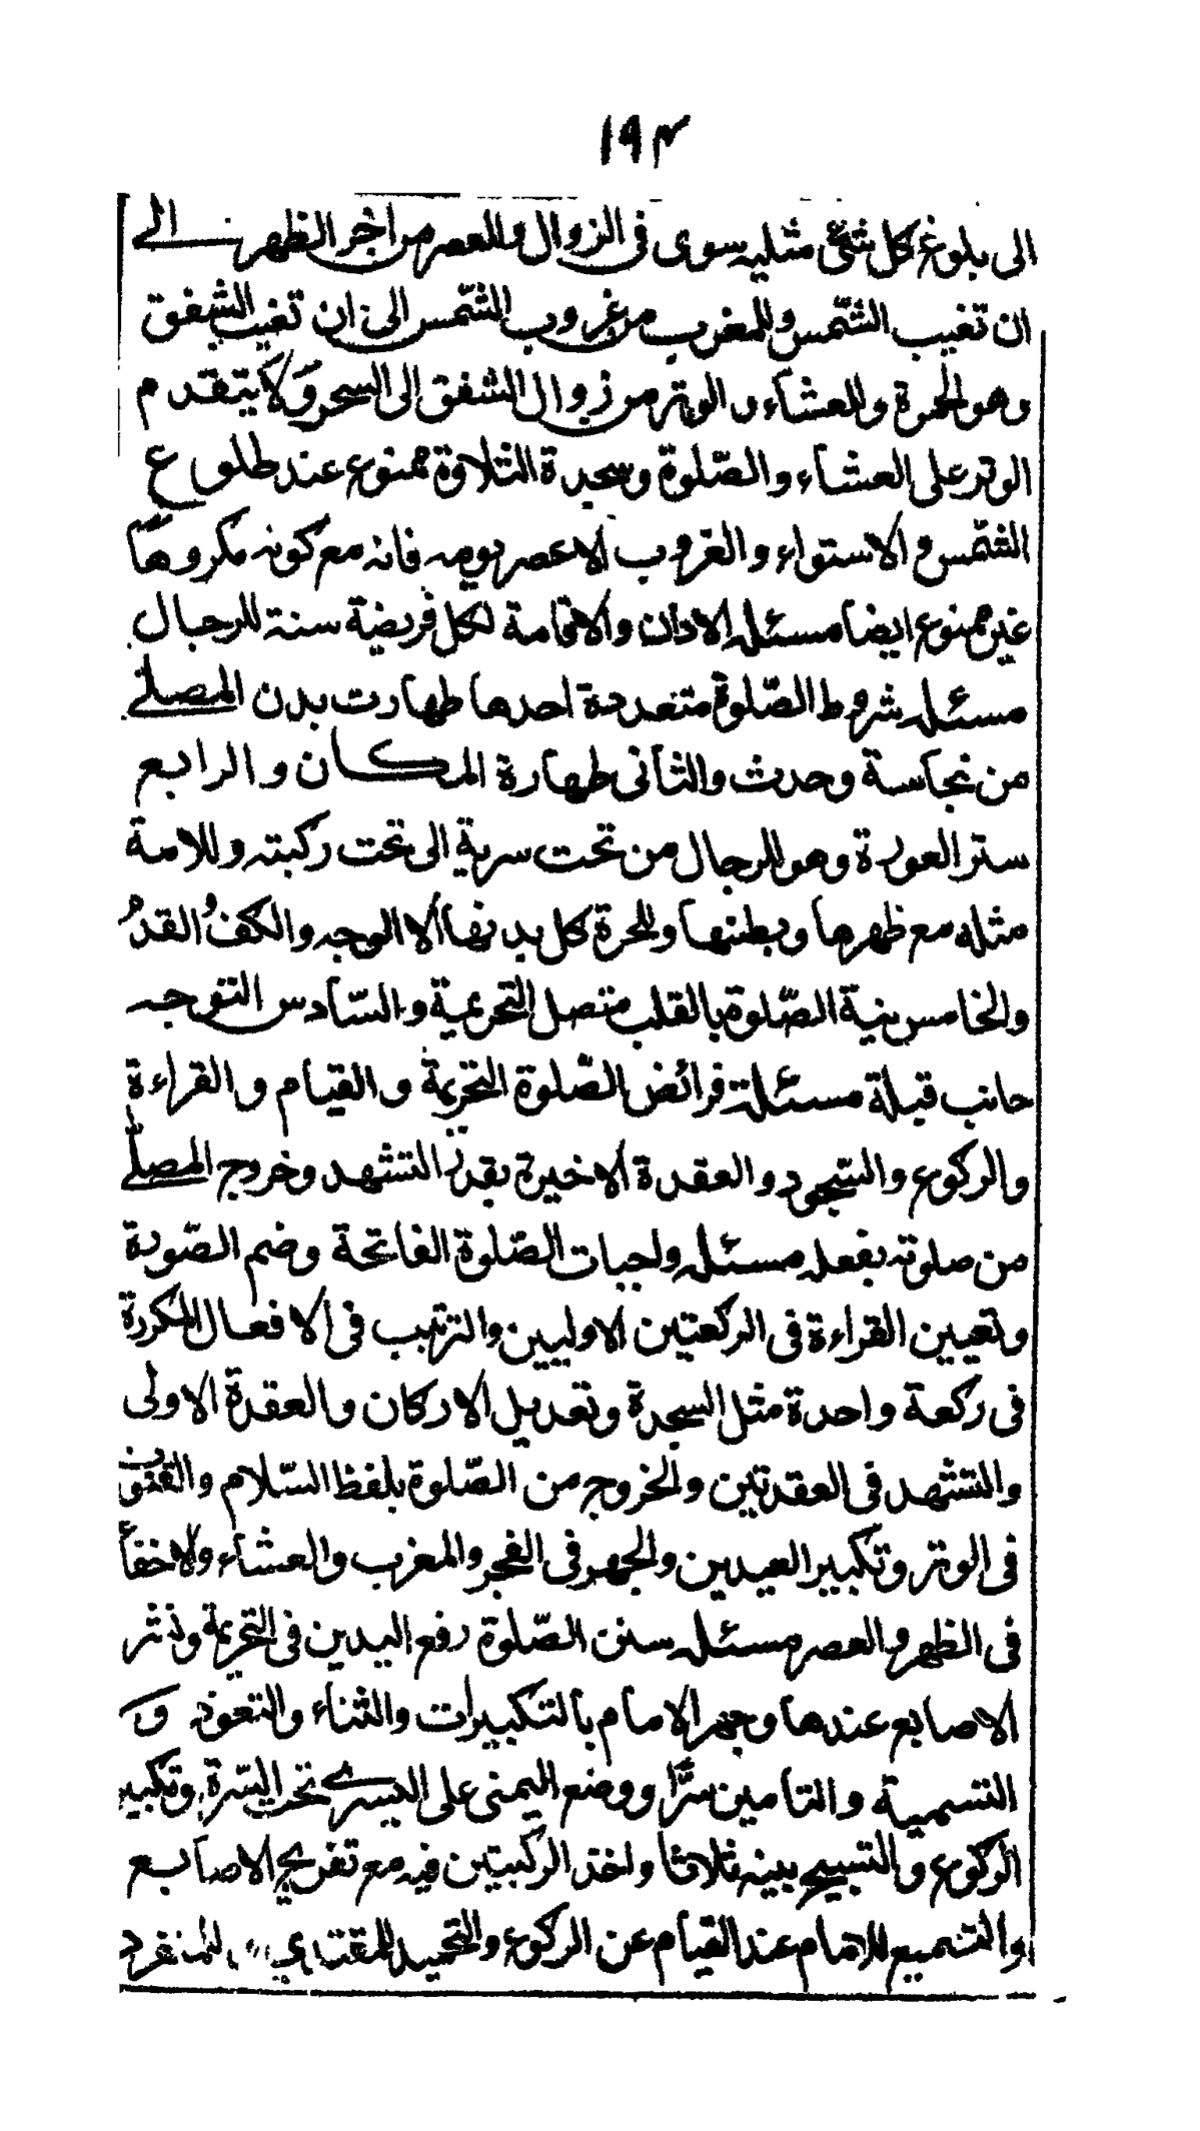 ١٩٤
الى بلوغ كل شئ مثليه سوى فى الزوال وللعصر من اخر الظهر الے
ان تغيب الشّمس وللمغرب من غروب الشّمس الى ان تغيب الشفق
وهو الحمرة وللعشاء و الوتر من زوال الشفق الى السحر وَلا يتقدم
الوتر على العشاء والصّلوة وسجدة التلاوة ممنوع عند طلوع
الشّمس و الاستواء و الغروب الا عصر يومه فانه مع كونه مكروهًا
غير ممنوع ايضا مسئله الاذان والاقامة لكل فريضة سنة للرجال
مسئله شروط الصّلوة متعددة احدها طهارت بدن المصلے
من نجاسة وحدث والثانى طهارة المكان والرابع
ستر العورة وهو للرجال من تحت سرية الى تحت ركبته وللامة
مثله مع ظهرها وبطنها وللحرة كل بدنها الا الوجه والكفُ القدمُ
والخامس نية الصّلوة بالقلب متصل التحريمية والسّادس التوجه
جانب قبلة مسئلة فرائض الصّلوة التحريمة والقيام والقراءة
والركوع والسّجود والعقدة الاخيرة بقدر التشهد وخروج المصلّے
من صلوته بفعله مسئله واجبات الصّلوة الفاتحة وضم الصّورة
وتعيين القراءة فى الركعتين الاوليين والترتيب فى الافعال المكررة
فى ركعة واحدة مثل السجدة وتعديل الاركان والعقدة الاولى
والتشهد فى العقدتين والخروج من الصّلوة بلفظ السّلام والقنوت
فى الوتر وتكبير العيدين والجهر فى الفجر والمغرب والعشاء والاخفأ
فى الظهر والعصر مسئله سنن الصّلوة رفع اليدين فى التحريمة ونثر
الاصابع عندها وجهر الامام بالتكبيرات والثناء والتعوذ وَ
التسمية والتامين سرًّا ووضع اليمنى على اليسرے تحت السّرة وتكبير
الركوع والتسبيح بينه ثلاثا واخذ الركبتين فيه مع تفريج الاصابع
والتسميع للامام عند القيام عن الركوع والتحميد للمقتدي للمنفرد